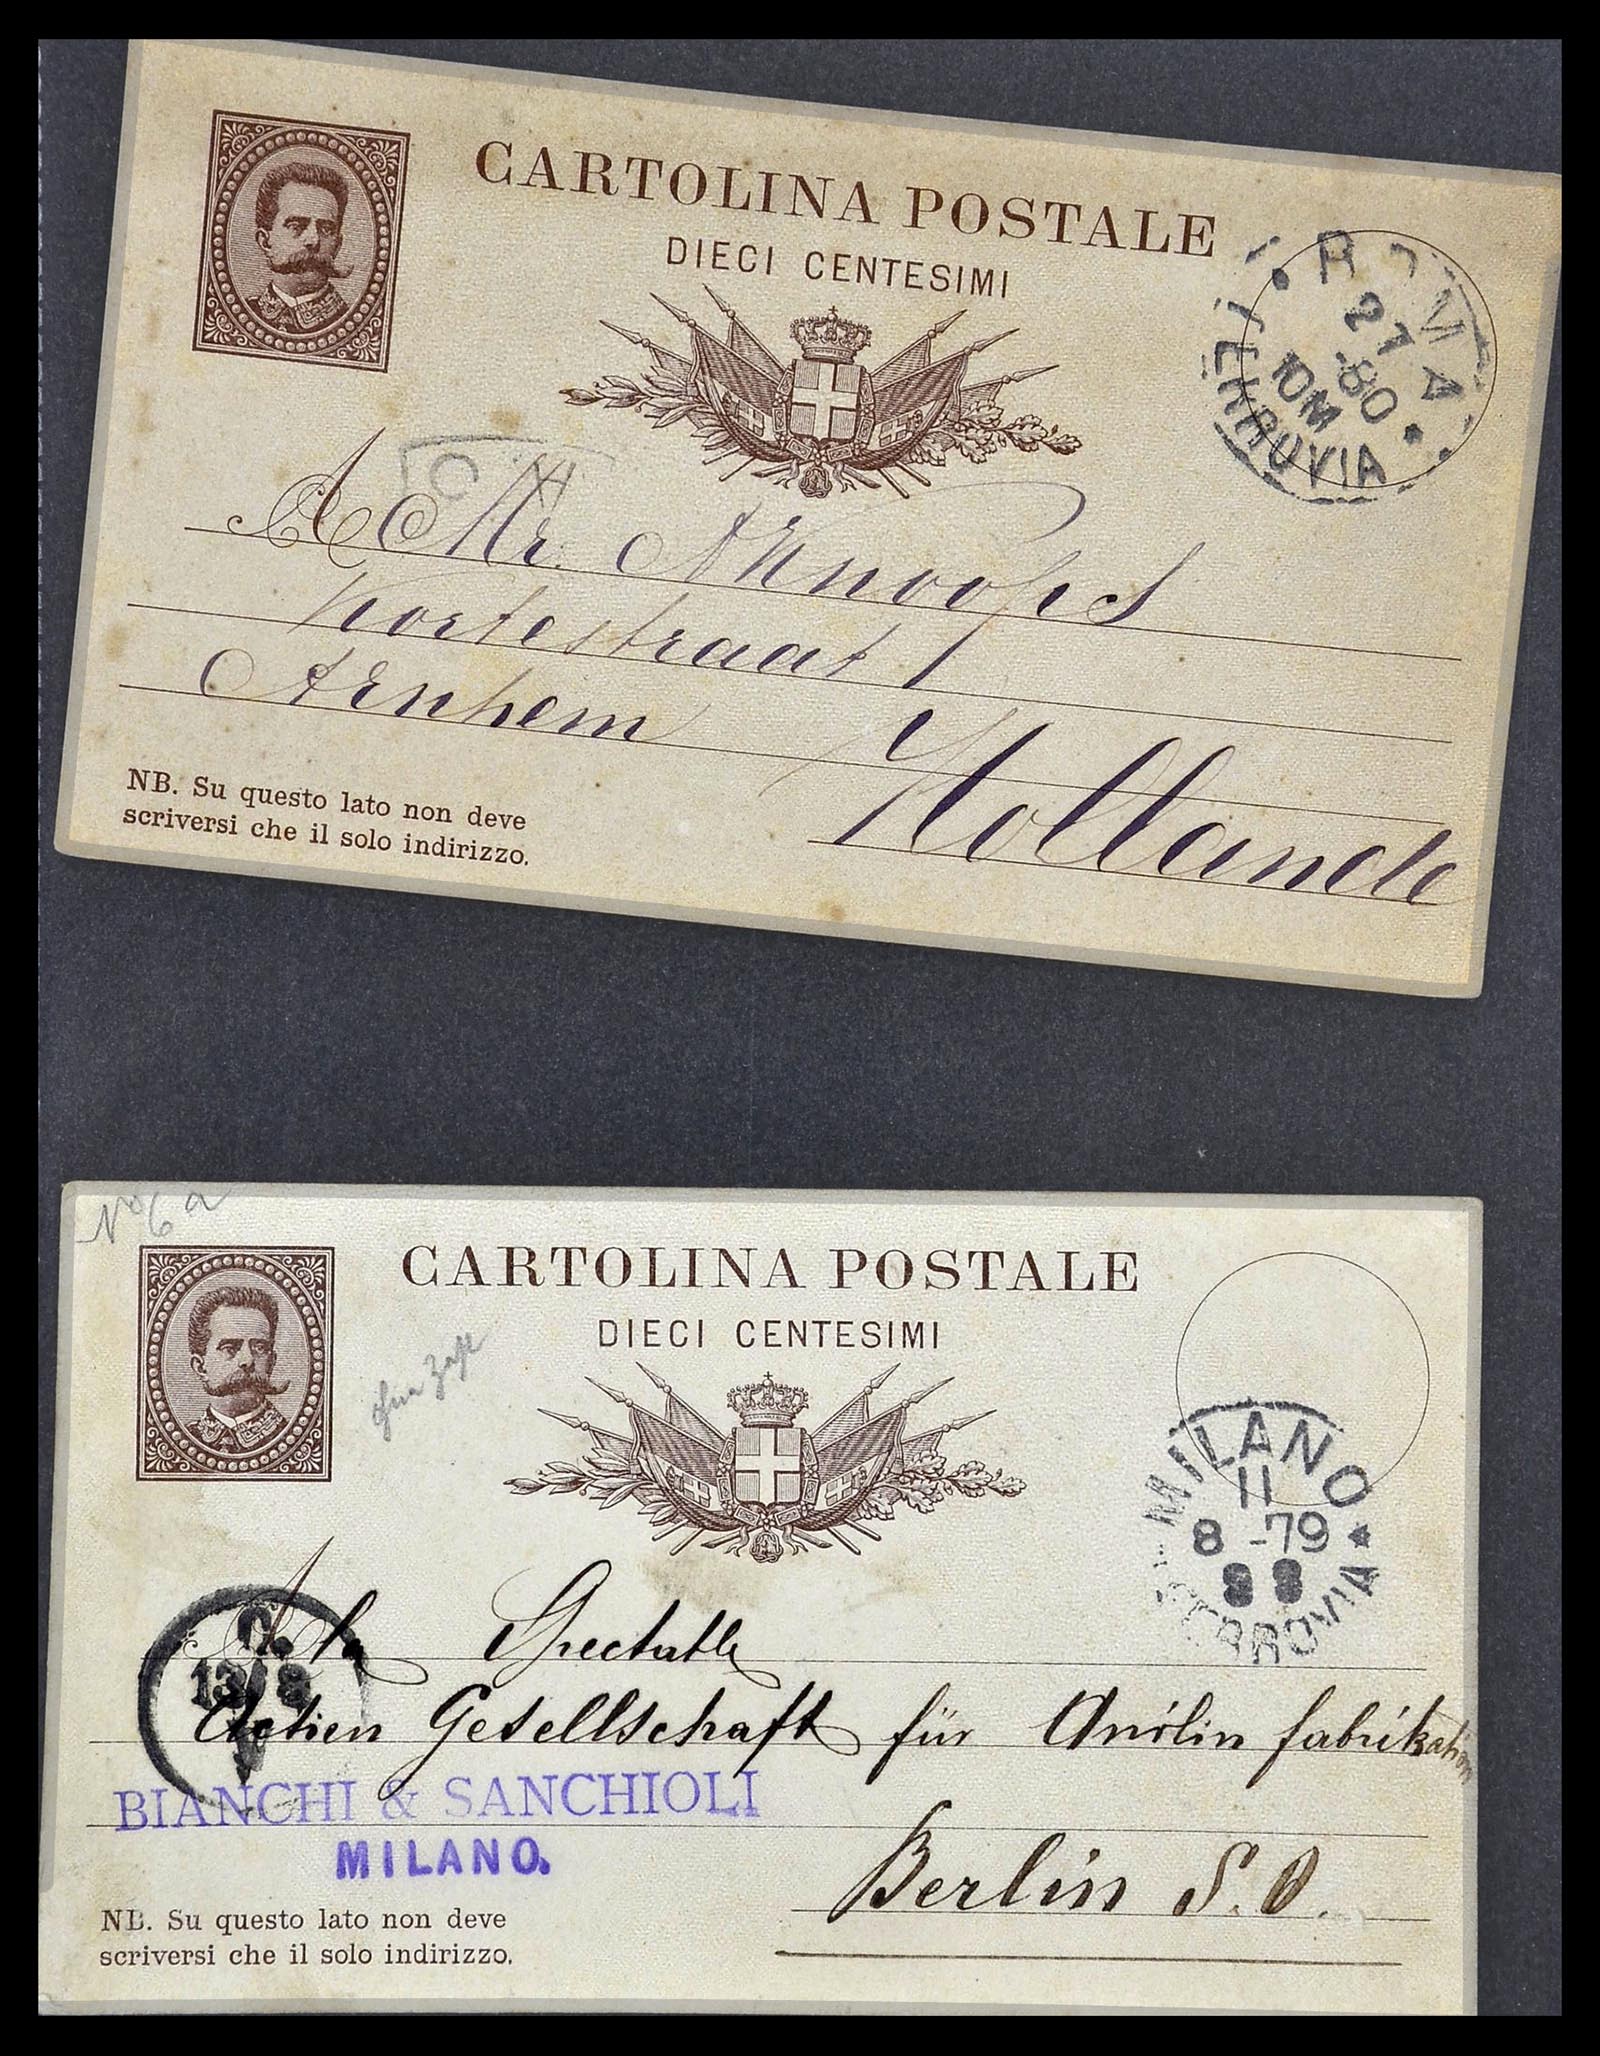 CARTOLINA POSTALE
DIECI CENTESIMI
ROMA
27
-80
10M
FERROVIA
A Mr. A Knoops
Kortestraat 1
Arnhem
Hollande
NB. Su questo lato non deve
scriversi che il solo indirizzo.
No 6a
CARTOLINA POSTALE
DIECI CENTESIMI
MILANO
11
8 -79
FERROVIA
A la Spectable
13/8
Actien Gesellschaft für Anilin fabrikation
BIANCHI & SANCHIOLI
MILANO.
Berlin S.O.
NB. Su questo lato non deve
scriversi che il solo indirizzo.